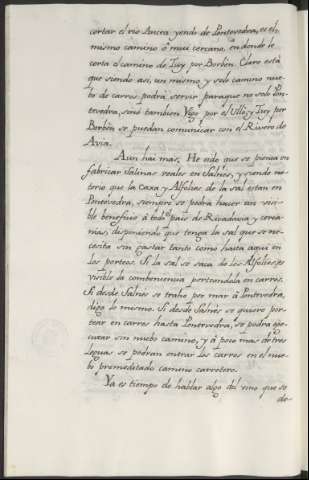 cortar el rio Ancea yendo de Pontevedra, es el
mismo camino ó mui cercano, en donde le
corta el camino de Tuy por Borbén. Claro está
que siendo asi, un mismo y solo camino nue-
bo de carros podrá servir para que no solo Pon-
tevedra, sinó tambien Vigo por el Ullò, y Tuy por
Borbèn se puedan comunicar con el Rivero de
Avia.
Aun hai mas. He oido que se piensa en
fabricar Salinas reales en Salnès, y siendo no-
torio que la Caxa y Alfolies de la sal estan en
Pontevedra, siempre se podrá hacer un visi-
ble beneficio á todo país de Rivadavia y cerca-
nias, disponiendo que tenga la sal que se ne-
cesita sin gastar tanto como hasta aqui en
los porteos. Si la sal se saca de los Alfolies, es
visible la combeniencia porteandola en carros.
Si desde Salnès se trahe por mar á Pontevedra,
digo lo mismo. Si desde Salnès se quiere por-
tear en carros hasta Pontevedra, se podrá eje-
cutar sin nuebo camino, y á poco mas de tres
leguas se podran entrar los carros en el nue-
bo premeditado camino carretero.
Ya es tiempo de hablar algo del vino que se
de-